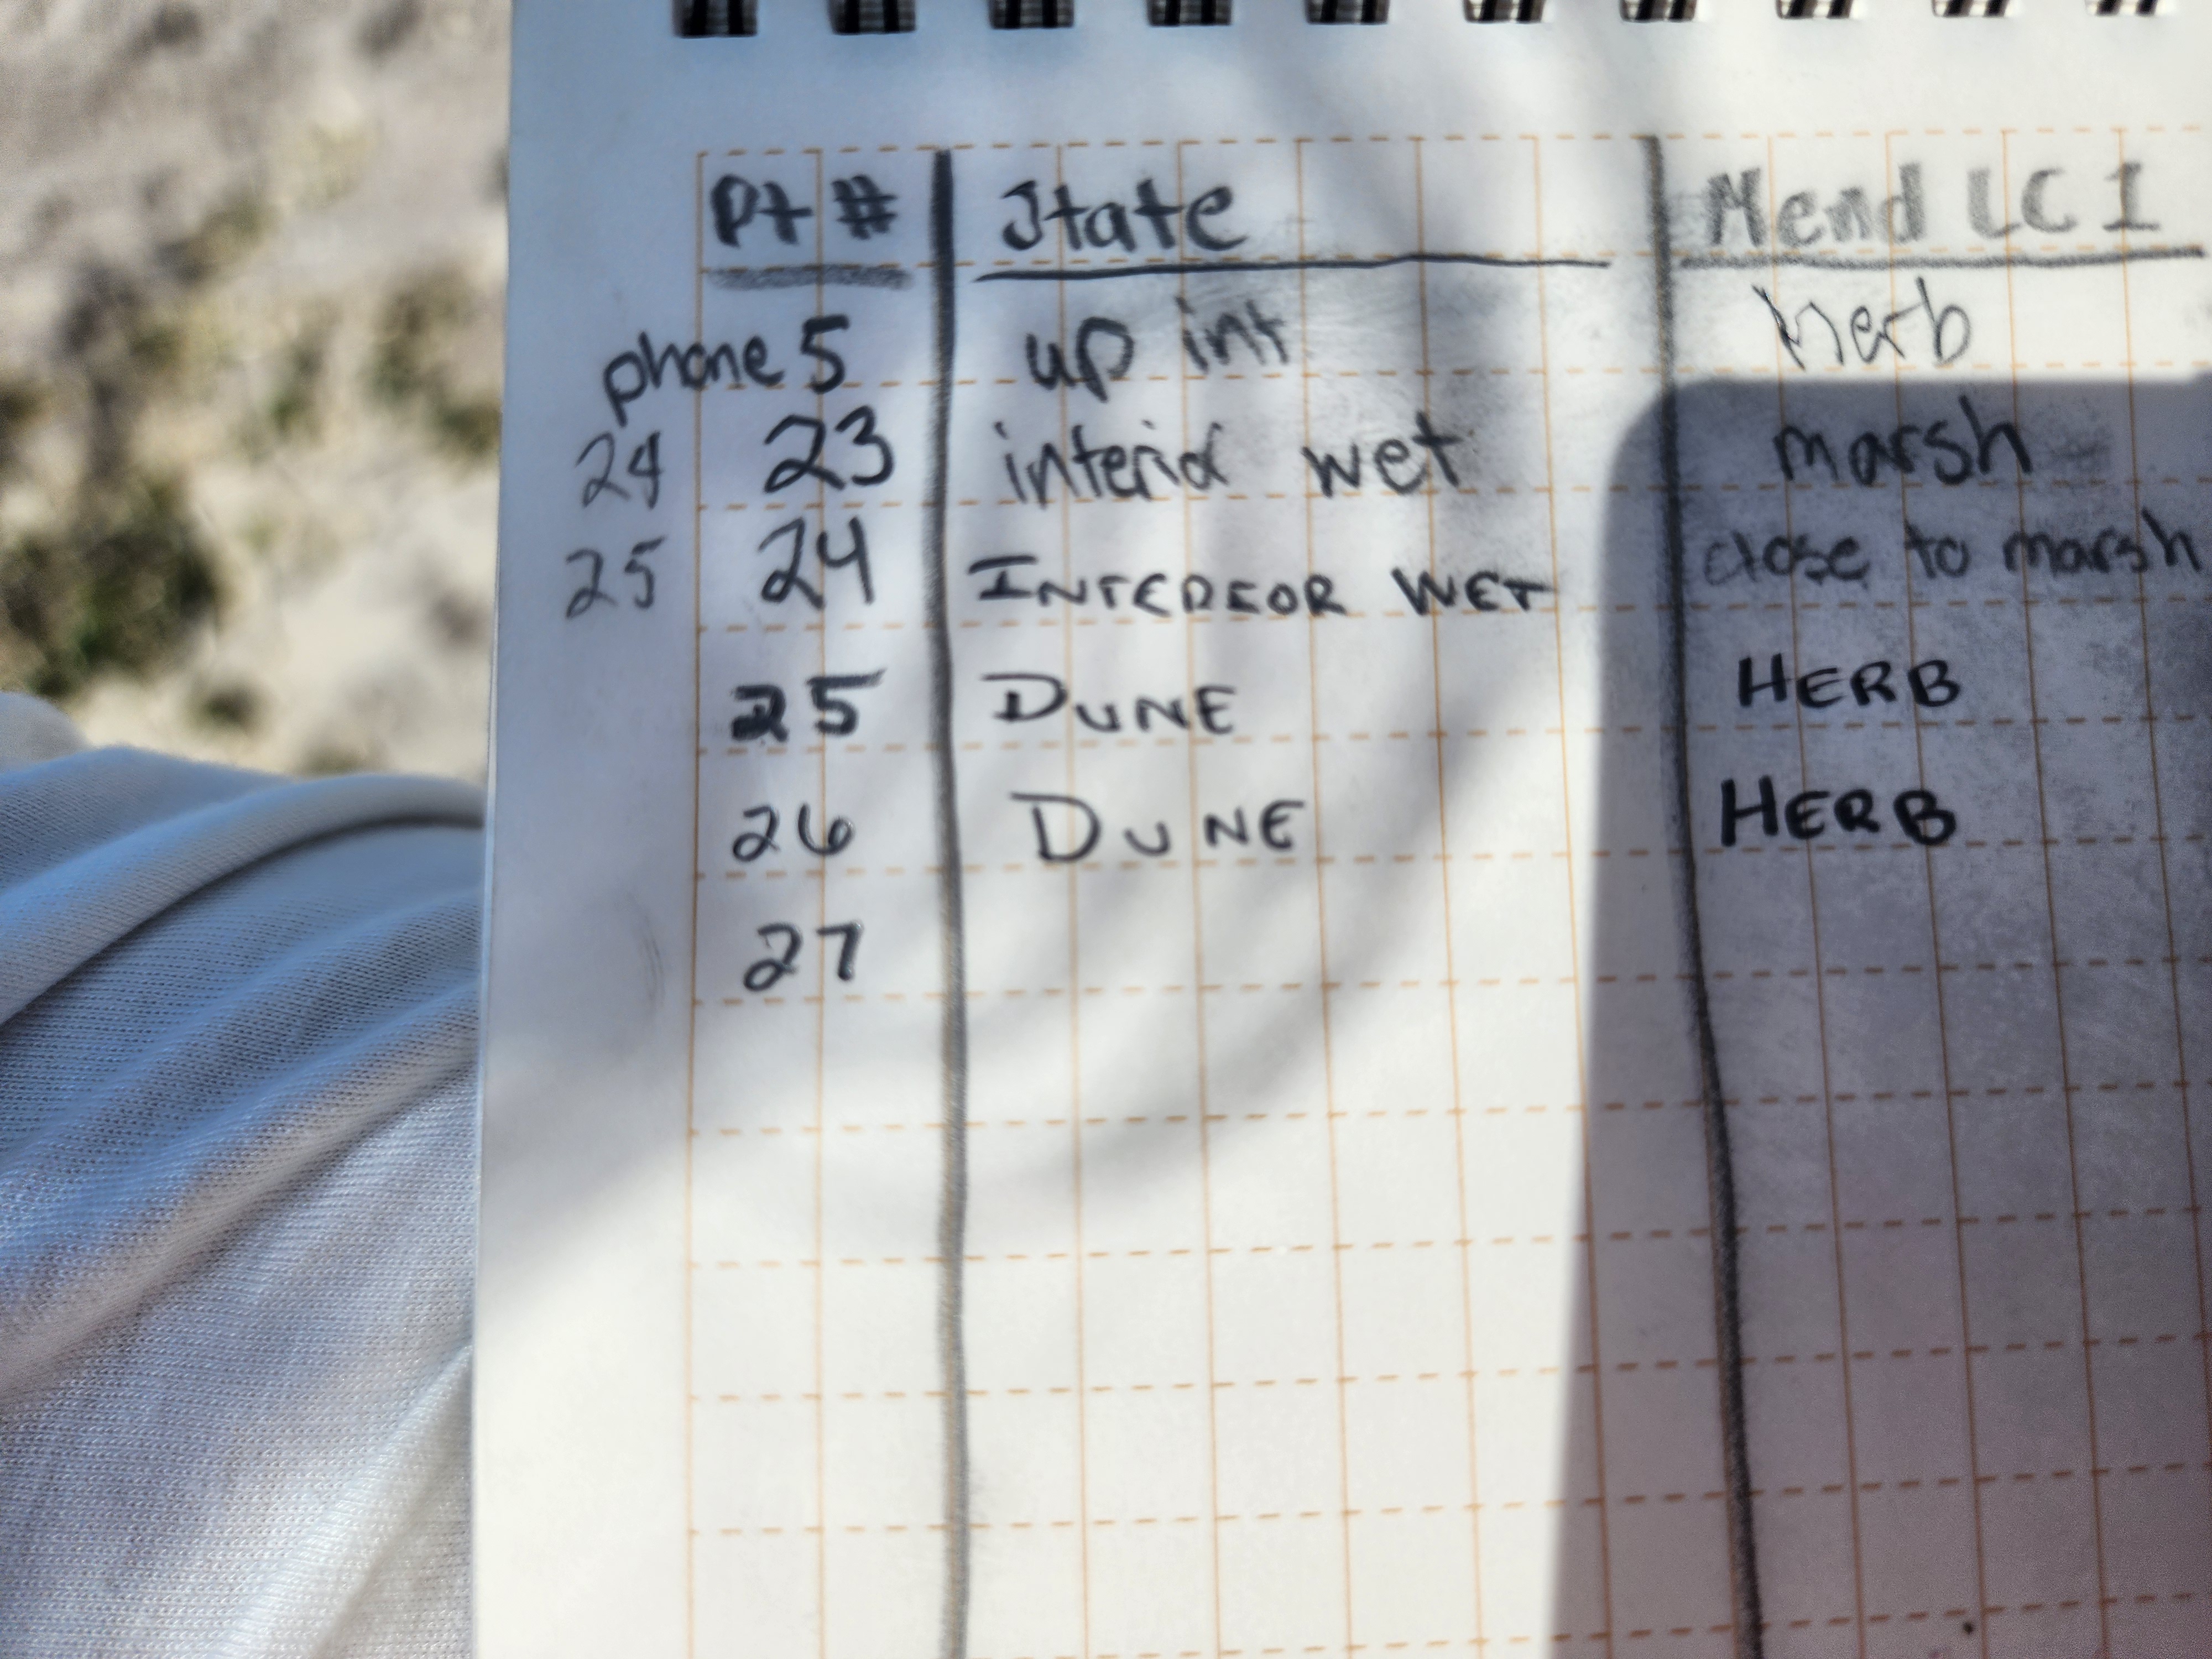 Pt # State Mend LC 1
phone 5 up int Herb
24 23 interior wet marsh
25 24 INTEREOR WET close to marsh
25 DUNE HERB
26 DUNE HERB
27